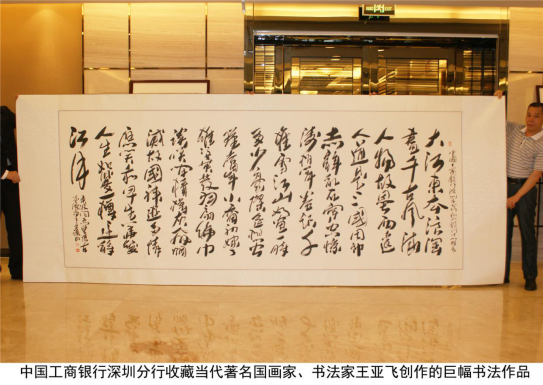 大江東去浪淘
盡千古風流
人物故壘西邊
人道是三國周郎
赤壁亂石穿空驚
濤拍岸卷起千
堆雪江山如畫一時
多少豪傑遙想公
瑾當年小喬初嫁了
雄姿英發羽扇綸巾
談笑間檣櫓灰飛煙
滅故國神遊多情
應笑我早生華髮
人生如夢一樽還酹
江月
中国工商银行深圳分行收藏当代著名国画家、书法家王亚飞创作的巨幅书法作品